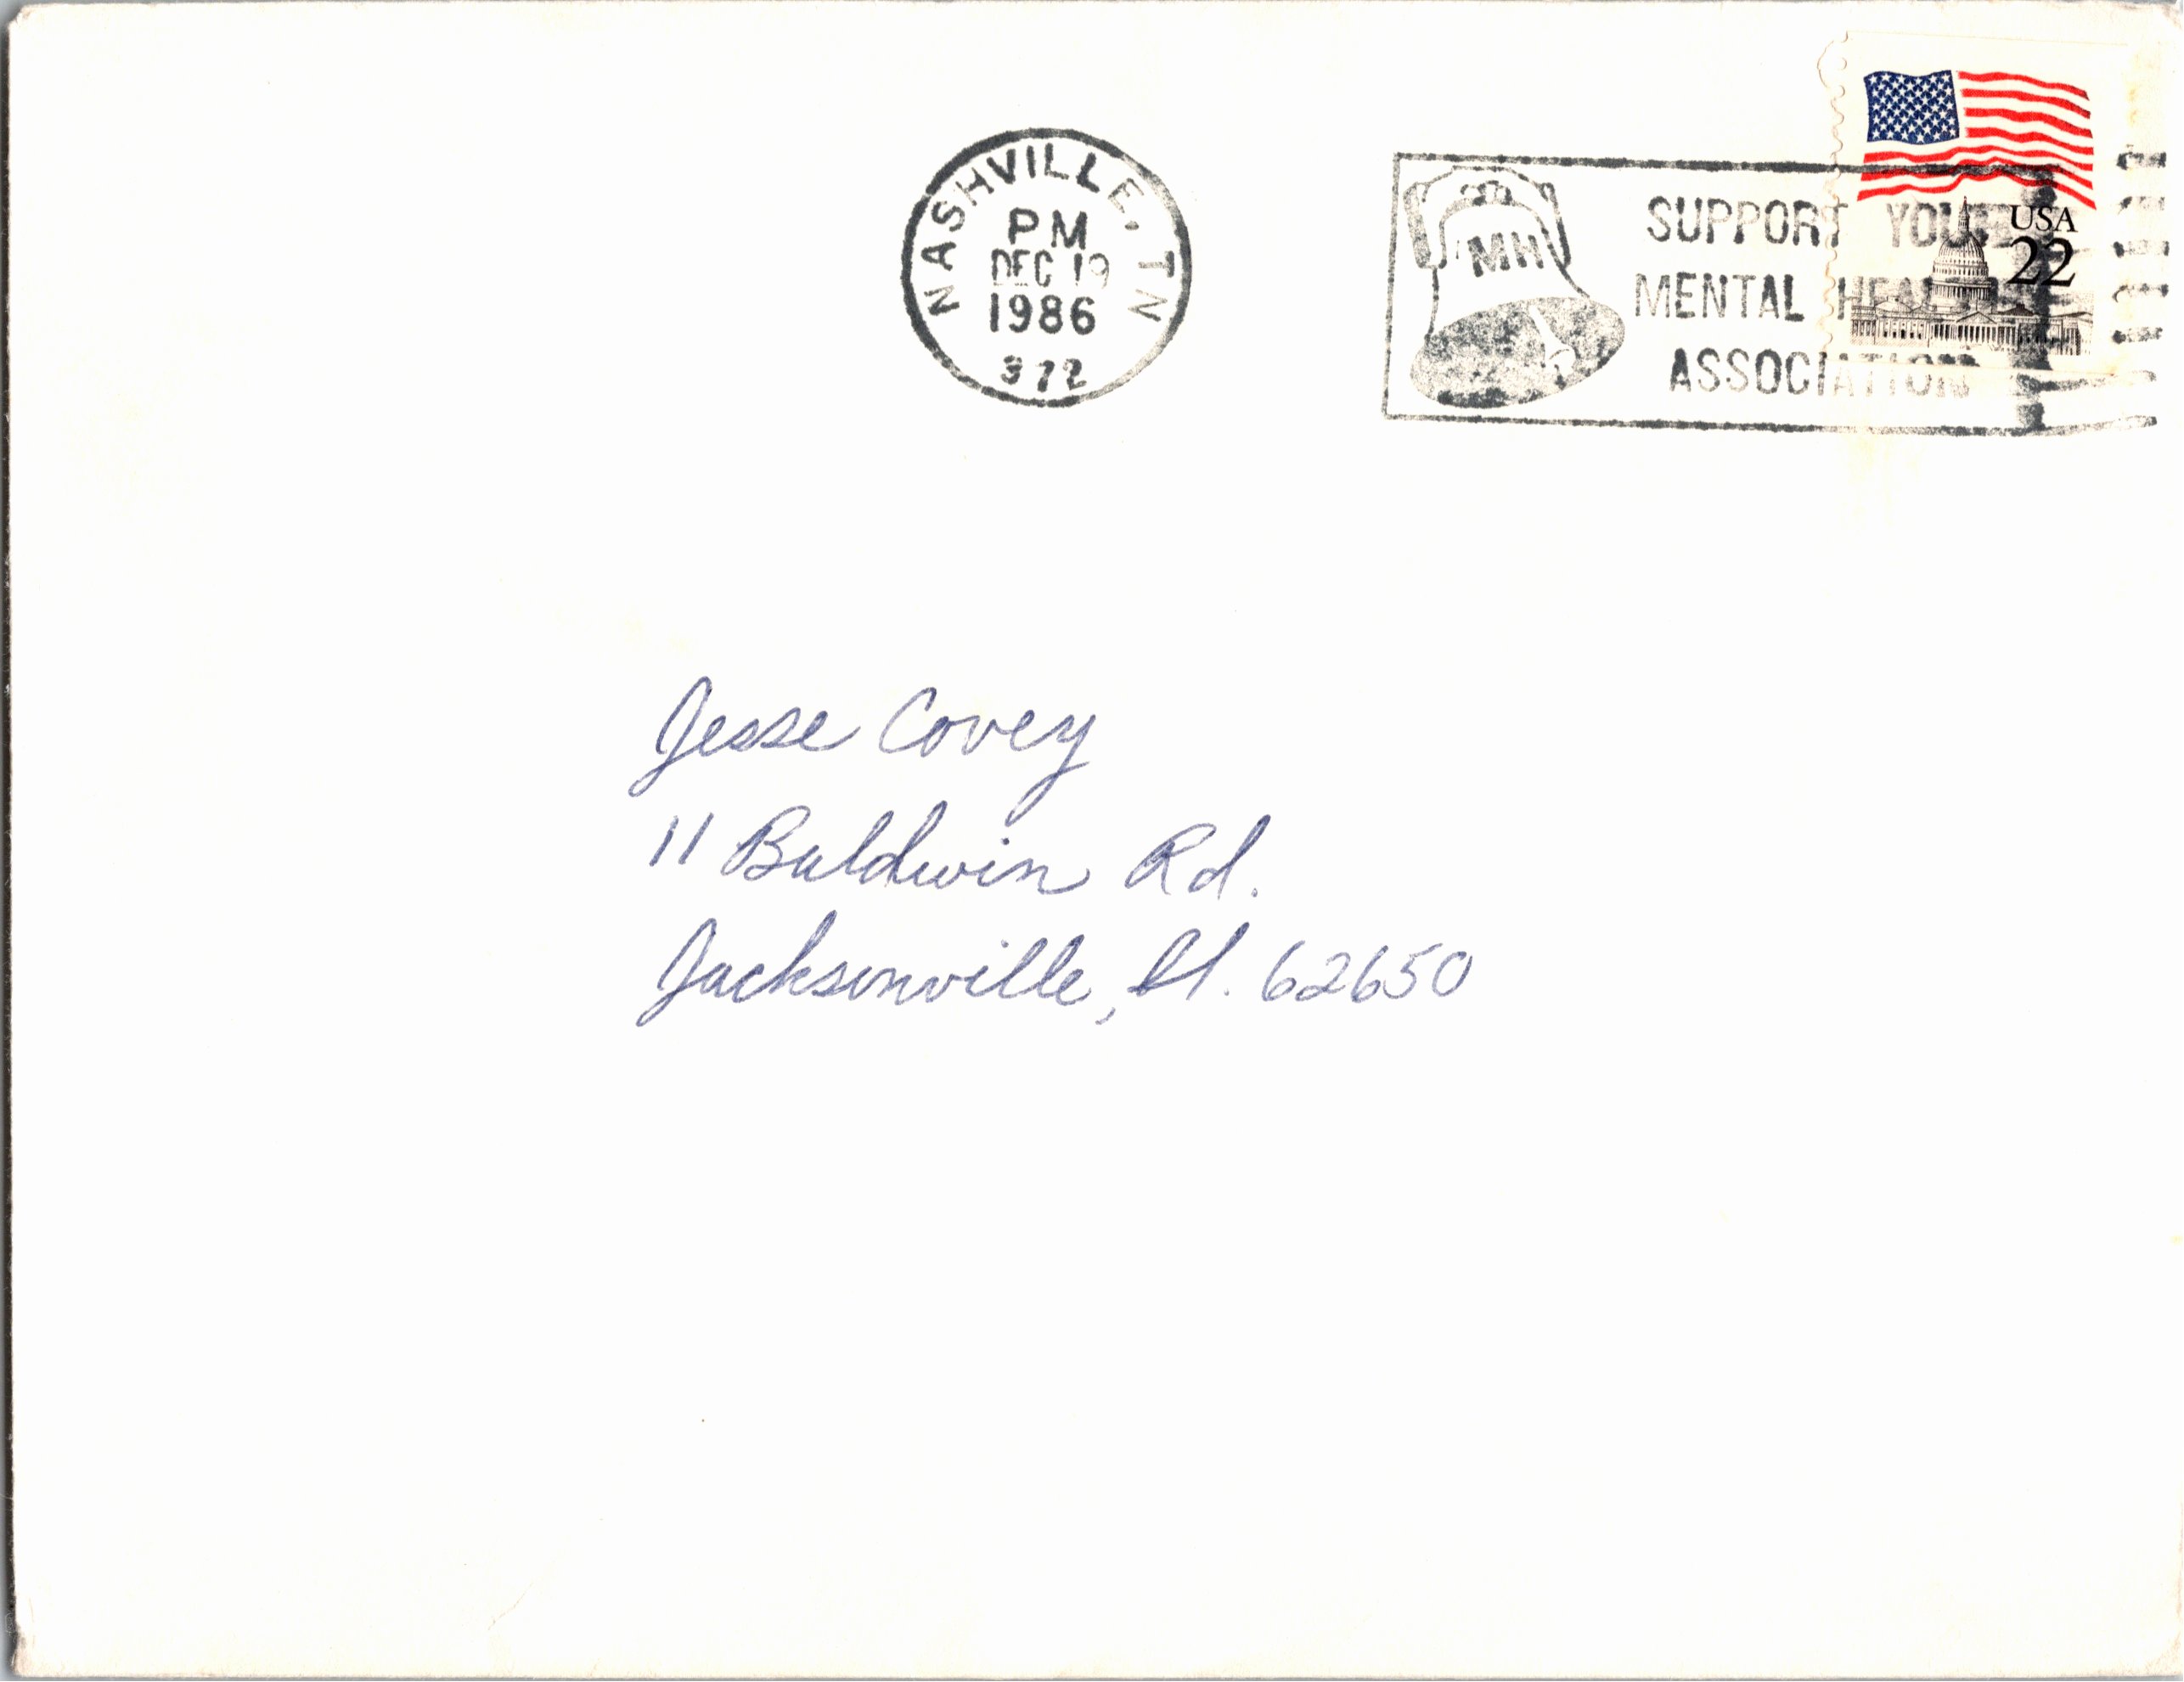 NASHVILLE, TN
PM
DEC 19
1986
372
MH
SUPPORT YOUR
MENTAL HEALTH
ASSOCIATION
USA
22
Jesse Covey
11 Baldwin Rd.
Jacksonville, Il. 62650